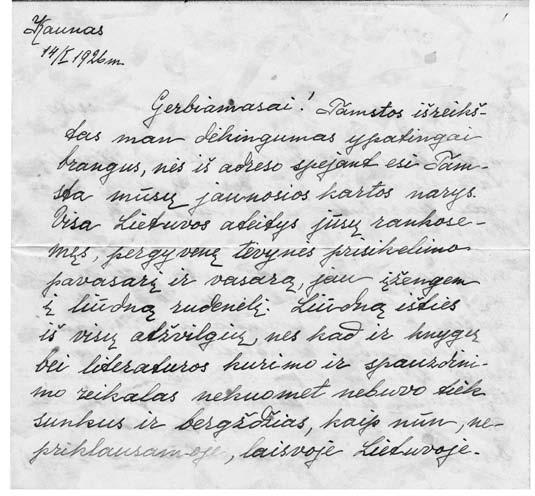 Kaunas
14/I 1926 m.
Gerbiamasai! Tamstos išreikš-
tas man dėkingumas ypatingai
brangus, nes iš adreso spėjant esi Tam-
sta mūsų jaunosios kartos narys.
Visa Lietuvos ateitys jūsų rankose -
męs, pergyvenę tėvynės prisikėlimo
pavasarį ir vasarą, jau įžengem
į liūdną rudenėlį. Liūdną išties
iš visų atžvilgių, nes kad ir knygų
bei literaturos kurimo ir spauzdini-
mo reikalas nekuomet nebuvo tiek
sunkus ir bergždžias, kaip nūn, ne-
priklausamoje, laisvoje Lietuvoje.